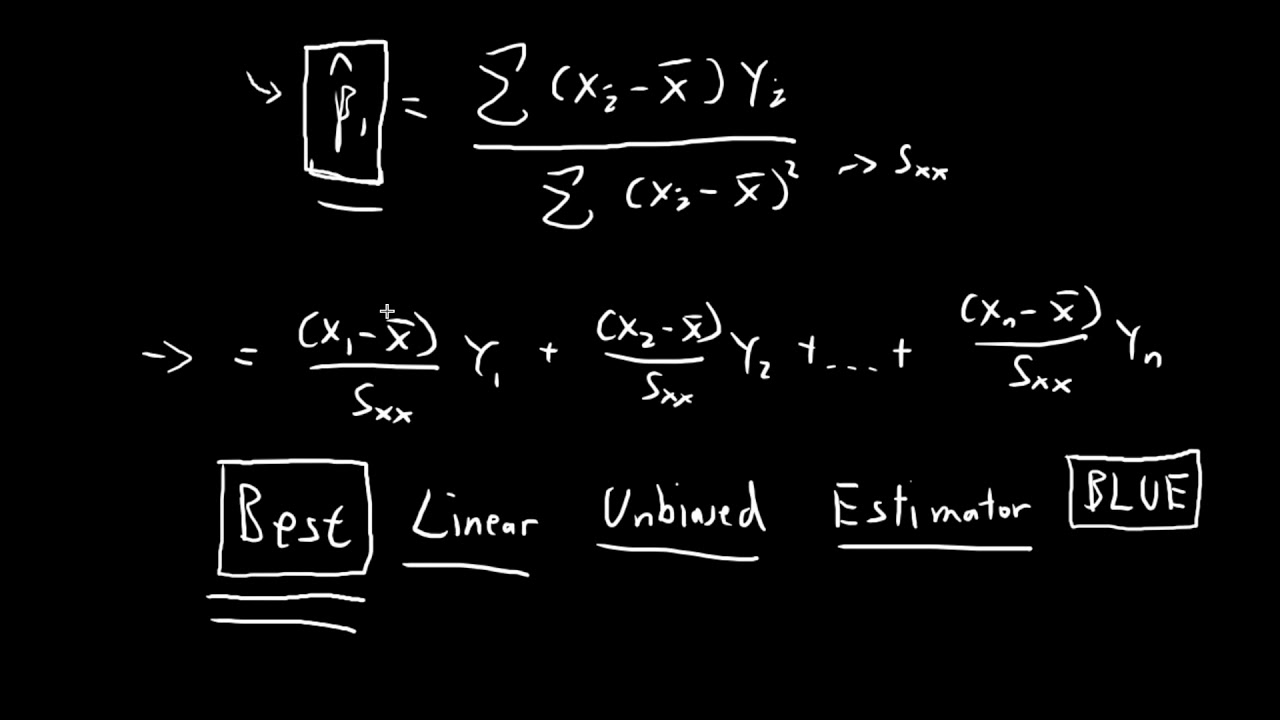 ↘ β̂₁ = Σ (xᵢ - x̄) Yᵢ / Σ (xᵢ - x̄)² → Sxx
→ = (x₁ - x̄)/Sxx Y₁ + (x₂ - x̄)/Sxx Y₂ + ... + (xₙ - x̄)/Sxx Yₙ
Best Linear Unbiased Estimator BLUE